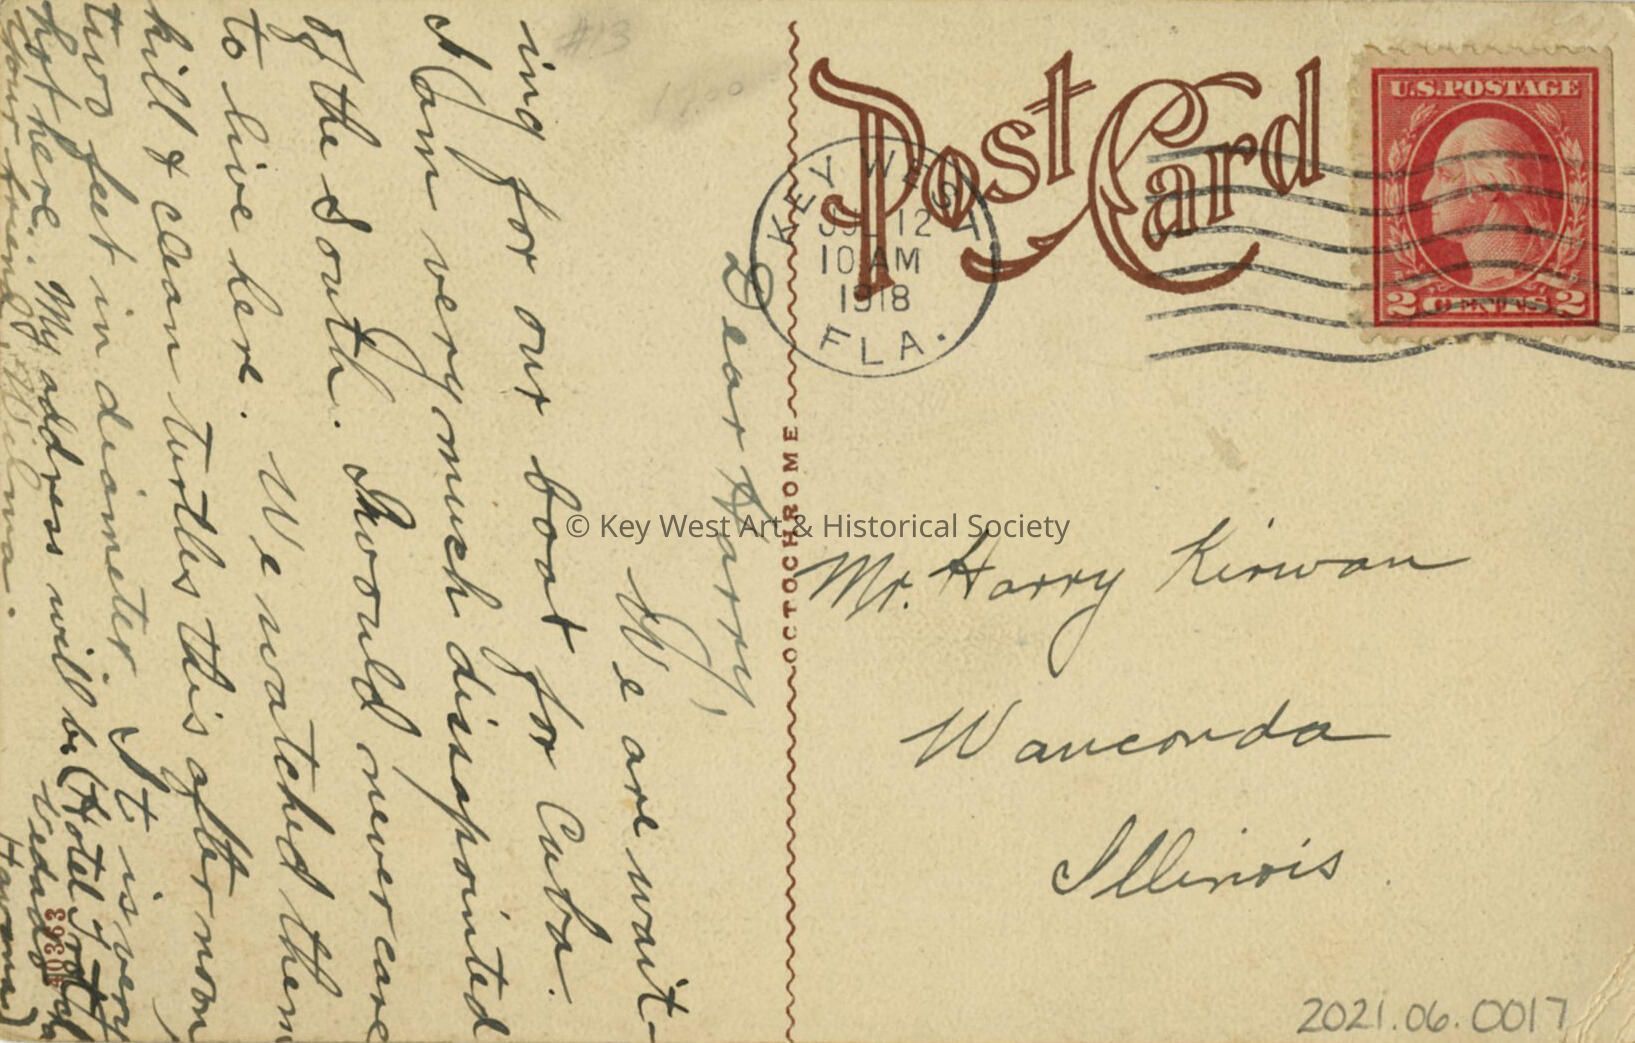 #13
17.00
Dear Harry,
We are wait-
ing for our boat for Cuba.
I am very much dissapointed
of the South. I would never care
to live here. We watched them
kill & clean turtles this afternoon,
two feet in diameter. It is very
hot here. My address will be (Hotel
Vedado
Havana)
Your friend, Wilma.
40363
Post Card
KEY WEST
JUL 12
10 AM
1918
FLA.
U.S. POSTAGE
2 CENTS 2
OCTOCHROME
© Key West Art & Historical Society
Mr. Harry Kirwan
Wauconda
Illinois.
2021.06.0017